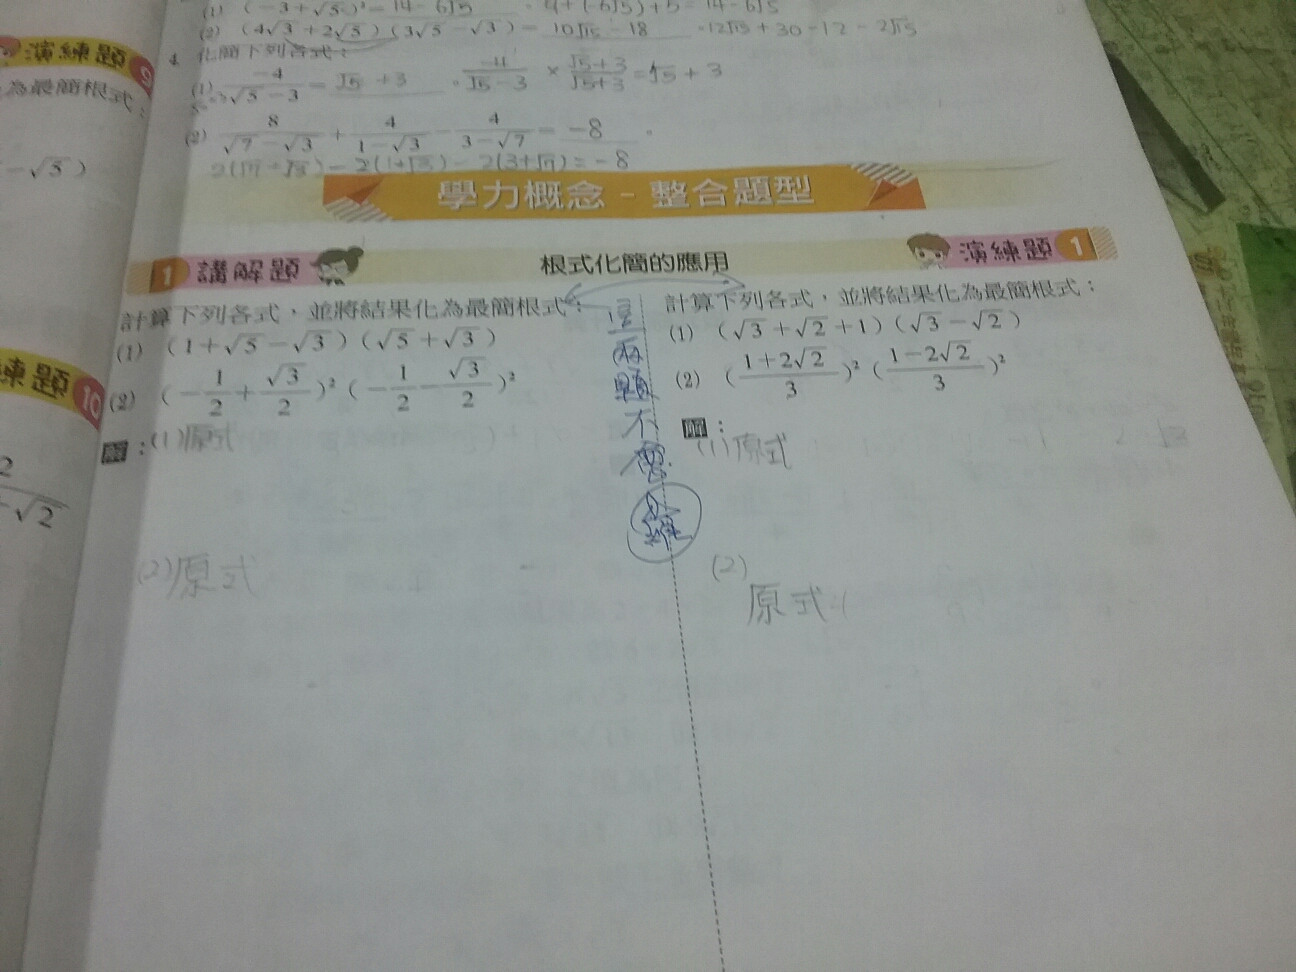 (1) (-3+√5)²= 14-6√5 。 9+(-6√5)+5=14-6√5
(2) (4√3+2√5)(3√5-√3)= 10√15-18 。12√15+30-12-2√15
演練題 9
為最簡根式：
4. 化簡下列各式：
(1) -4/(√5-3) = √5+3 。 -4/(√5-3) × (√5+3)/(√5+3) = √5+3
-√5)
(2) 8/(√7-√3) + 4/(1-√3) - 4/(3-√7) = -8 。
2(√7+√3)-2(1+√3)-2(3+√7)=-8
學力概念-整合題型
1 講解題
根式化簡的應用
演練題 1
計算下列各式，並將結果化為最簡根式：
(1) (1+√5-√3)(√5+√3)
(2) (-1/2+√3/2)²(-1/2-√3/2)²
解：(1)原式
(2)原式
練題 10
2
-√2
這兩題不會
計算下列各式，並將結果化為最簡根式：
(1) (√3+√2+1)(√3-√2)
(2) ((1+2√2)/3)²((1-2√2)/3)²
解：
(1)原式
(2)
原式